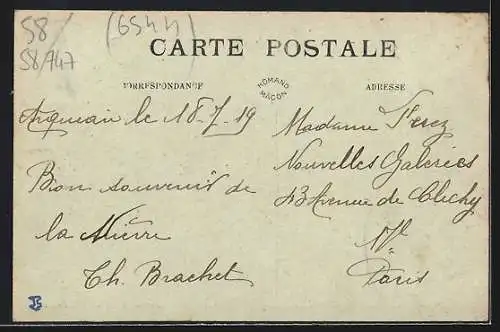 58
58/747
(6544)
CARTE POSTALE
CORRESPONDANCE
ROMAND
MACON
ADRESSE
Arquian le 18-7-19
Bon souvenir de
la Nièvre
Th. Brachet
Madame Perez
Nouvelles Galeries
43 Avenue de Clichy
17e
Paris